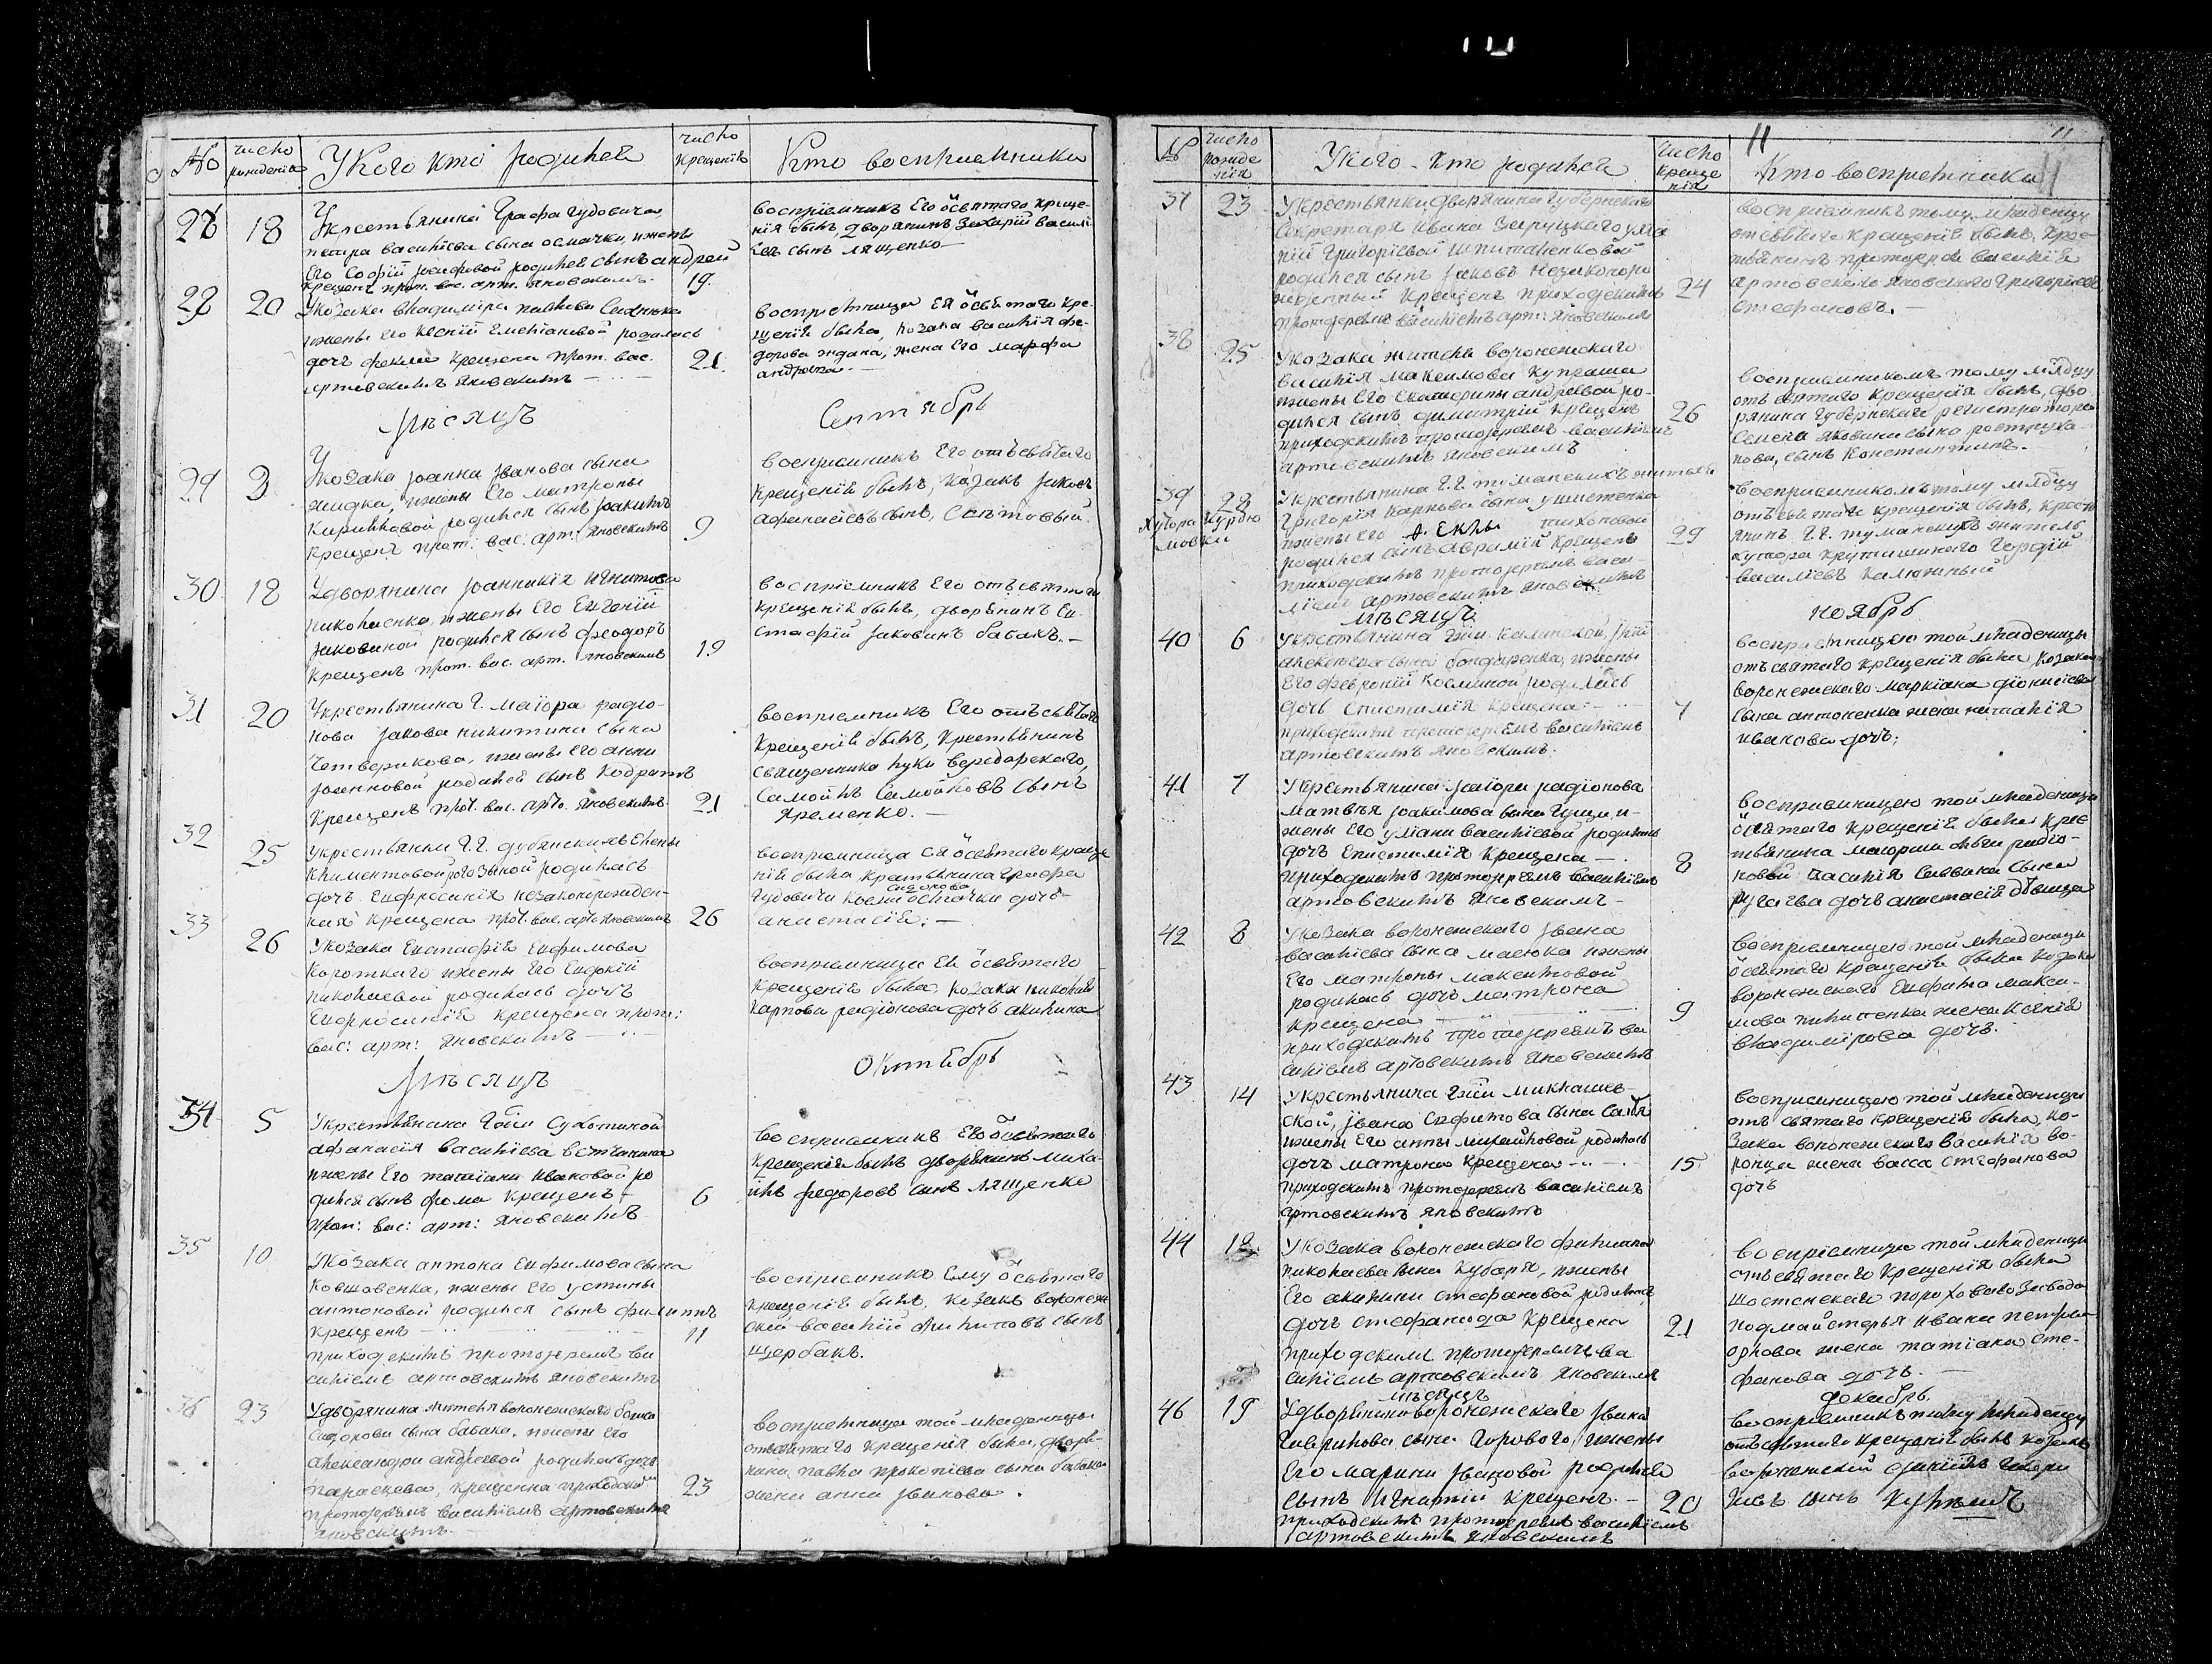 No
число рожденія
У Кого кто родился
число крещенія
Кто восприемники
27
18
У крестьянина Графа Гудовича
петра василіева сына осмачки, ижены
Его Софіи родился сынъ андрей
крещенъ прот. вас. арт. яновскимъ.
19.
восприемникъ Его ѿ святаго креще-
нія былъ, дворянинъ Захарій василі-
евъ сынъ лященко
28
20
У козака владиміра павлова
ижены его Ксеніи Емеліановой родилась
дочь фекла крещена прот. вас.
артовскимъ яновскимъ
21
восприемница Ея ѿ святаго кре-
щенія была, козака василія фе-
дорова ждана, жена Его марфа
андреева.
мѣсяцъ
Септябрь
29
3
У козака Іоанна Іванова сына
жидка, ижены Его матроны
Кириловой родился сынъ Іоакимъ
крещенъ прот. вас. арт. Яновскимъ
9
восприемникъ Его отъ святаго
крещенія былъ, козакъ Іаковъ
афанасіевъ сынъ,
30
18
У дворянина Іоанникія Игнатова
николаенка, ижены Его Евгеніи
Іаковиной родился сынъ феодоръ
крещенъ прот. вас. арт. яновскимъ
19
восприемникъ Его отъ святаго
крещенія былъ, дворянинъ Ев-
стафій Іаковинъ бабакъ.
31
20
У крестьянина Г. маіора радіо-
нова Іакова никитина сына
Четверикова, ижены его анны
Іоанновой родился сынъ Кодратъ
крещенъ прот. вас. арт. яновскимъ.
21
восприемникъ Его отъ святаго
крещенія былъ, крестьянинъ
священника луки вередарского,
Самойлъ Самойловъ сынъ
яременко.
32
25
У крестьянки Г. Г. дубянскихъ Елены
Климентовой родилась
дочь Евфросинія незаконорожден-
ная крещена прот. вас. арт. яновскимъ
26
восприемница ея ѿ святаго креще
нія была крестьянина графа
Гудовича Козмы осмачки дочь
анастасія.
33
26
У козака Евстафія Евфимова
короткаго ижены Его Евдокіи
николаевой родилась дочь
Евфросинія крещена прот:
вас: арт: яновскимъ
восприемница Ея ѿ святаго
крещенія была козака николая
карпова радіонова дочь акилина
Мѣсяцъ
Октябрь
34
5
У крестьянина Гжи Сухотиной
афанасія василіева
ижены Его татіаны Ивановой ро
дился сынъ фома крещенъ
прот: вас: арт: яновскимъ
6
восприемникъ Его ѿ святаго
крещенія былъ дворянинъ миха-
илъ федоровъ сынъ лященко
35
10
У козака антона Евфимова сына
Ковшовенка, ижены его устины
антоновой родился сынъ филиппъ
крещенъ
приходскимъ протоіереемъ ва
силіемъ артовскимъ яновскимъ
11
восприемникъ Ему ѿ святаго
крещенія былъ, козакъ воронеж
скій василій филиповъ сынъ
щербакъ.
36
23
У дворянина жителя воронежскаго
сына бабака, ижены его
александры андреевой родилась дочь
параскева, крещенна приходскимъ
протоіереемъ василіемъ артовскимъ
яновскимъ.
23
восприемница той младеницы
отъ святаго крещенія была, дворя-
нина павла прокопіева сына бабака
жена анна Іванова.
11
№
число рожде нія
У кого - кто родился
число креще нія
Кто восприемники
37
23
У крестьянки дворянина Губернскаго
Секретаря Ивана Заруцкаго
Григоріевой
родился сынъ Іаковъ незаконоро
жденный крещенъ приходскимъ
протоіереемъ василіемъ арт: яновскимъ
24
восприемникъ тому младенцу
отъ святаго крещенія былъ, крес-
тьянинъ протоіерея василія
артовскаго яновскаго Григорій
Стефановъ.
38
25
У козака жителя воронежскаго
василія максимова
ижены Его Екатерины андреевой ро-
дился сынъ димитрій крещенъ
приходскимъ протоіереемъ василіемъ
артовскимъ яновскимъ
26
восприемникомъ тому мл҃адцу
отъ святаго крещенія былъ, дво-
рянина Губернскаго регистратора
Семена яковина сына
сынъ Константинъ.
39
28
Хутора Курдю мовки
У крестьянина Г. Г. туманскихъ жителя
Григорія карпова сына
ижены Его ѳ. Еклы тихоновой
родился сынъ аврамій крещенъ
приходскимъ протоіереемъ васи-
ліемъ артовскимъ яновскимъ
29
восприемникомъ тому мл҃адцу
отъ святаго крещенія былъ, кресть
янинъ Г. Г. туманскихъ житель
хутора Гордій
василіевъ Калюжный
мѣсяцъ
ноябрь
40
6
У крестьянина Гжи
алексѣева сына бондаренка, ижены
Его февроніи Косминой родилась
дочь Епистимія крещена
приходскимъ протоіереемъ василіемъ
артовскимъ яновскимъ.
7
восприемницею той младеницы
отъ святаго крещенія была козака
воронежскаго маркіана діонисіева
сына антоненка жена наталія
иванова дочь;
41
7
У крестьянина маіора радіонова
матвѣя Іоакимова сына Гуци, и-
жены Его уліаны василіевой родилась
дочь Епистимія крещена
приходскимъ протоіереемъ василіемъ
артовскимъ яновскимъ
8
восприемницею той младеницы
ѿ святаго крещенія была крес
тьянина маіорши радіо-
новой василія Саввина сына
дочь анастасія дѣвица
42
8
У козака воронежскаго Івана
василіева сына ижены
Его матроны максимовой
родилась дочь матрона
крещена
приходскимъ протоіереемъ ва
силіемъ артовскимъ яновскимъ
9
восприемницею той младеницы
ѿ святаго крещенія была козака
воронежскаго Евфима макси-
мова жена Ксенія
владимірова дочь.
43
14
У крестьянина Гжи миклашев-
ской, Івана сына
ижены Его анны михайловой родилась
дочь матрона крещена
приходскимъ протоіереемъ василіемъ
артовскимъ яновскимъ
15
восприемницею той младеницы
отъ святаго крещенія была, ко-
зака воронежскаго василія во-
ронца жена васса стефанова
дочь
44
У козака воронежскаго филипа
николаева сына Кубаря, ижены
Его акилины стефановой родилась
дочь стефанида крещена
приходскимъ протоіереемъ ва
силіемъ артовскимъ яновскимъ
21
восприемница той младеницы
отъ святаго крещенія была
шостенскаго пороховаго завода
подмайстерья ивана петрова
орлова жена татіана сте-
фанова дочь.
мѣсяцъ
декабрь.
46
19
У дворянина воронежскаго Івана
Гаврилова сына Горового, ижены
Его марины Івановой родился
сынъ Игнатій крещенъ.
приходскимъ протоіереемъ василіемъ
артовскимъ яновскимъ
20
восприемникъ тому младенцу
отъ святаго крещенія былъ козакъ
воронежскій
сынъ